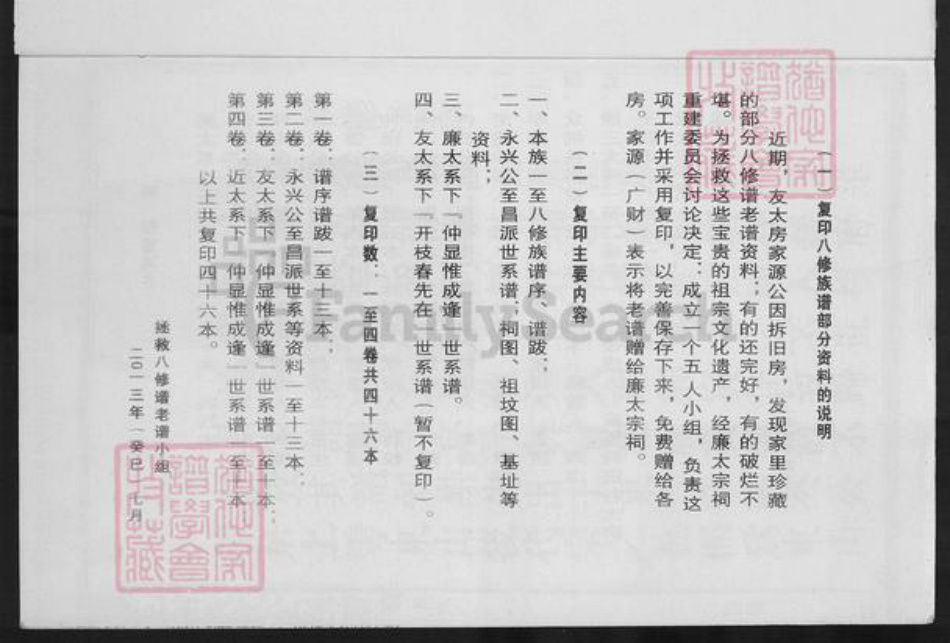 （一）复印八修族谱部分资料的说明
近期，友太房家源公因拆旧房，发现家里珍藏
的部分八修谱老谱资料：有的还完好，有的破烂不
堪。为拯救这些宝贵的祖宗文化遗产，经廉太宗祠
重建委员会讨论决定：成立一个五人小组，负责这
项工作并采用复印，以完善保存下来，免费赠给各
房。家源（广财）表示将老谱赠给廉太宗祠。
（二）复印主要内容
一、本族一至八修族谱序、谱跋；
二、永兴公至昌派世系谱：祠图、祖坟图、基址等
资料；
三、廉太系下「仲显惟成逢」世系谱。
四、友太系下「开枝春先在」世系谱（暂不复印）。
（三）复印数：一至四卷共四十六本
第一卷：谱序谱跋一至十三本；
第二卷：永兴公至昌派世系等资料一至十三本；
第三卷：友太系下「仲显惟成逢」世系谱一至十本；
第四卷：近太系下「仲显惟成逢」世系谱一至十本
以上共复印四十六本。
拯救八修谱老谱小组
二〇一三年（癸巳）七月
FamilySearch
譜學會
藏